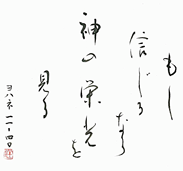 もし
信じる
なら
神の栄光を
見る
ヨハネ 一一・四〇